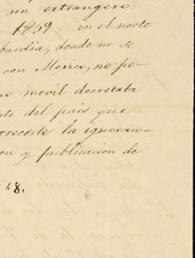 un extrangero
1859 en el norte
bardía, donde no se
con Mexico, no po-
movil decretaba
del pais que
la ignoran-
y publicacion de
48.